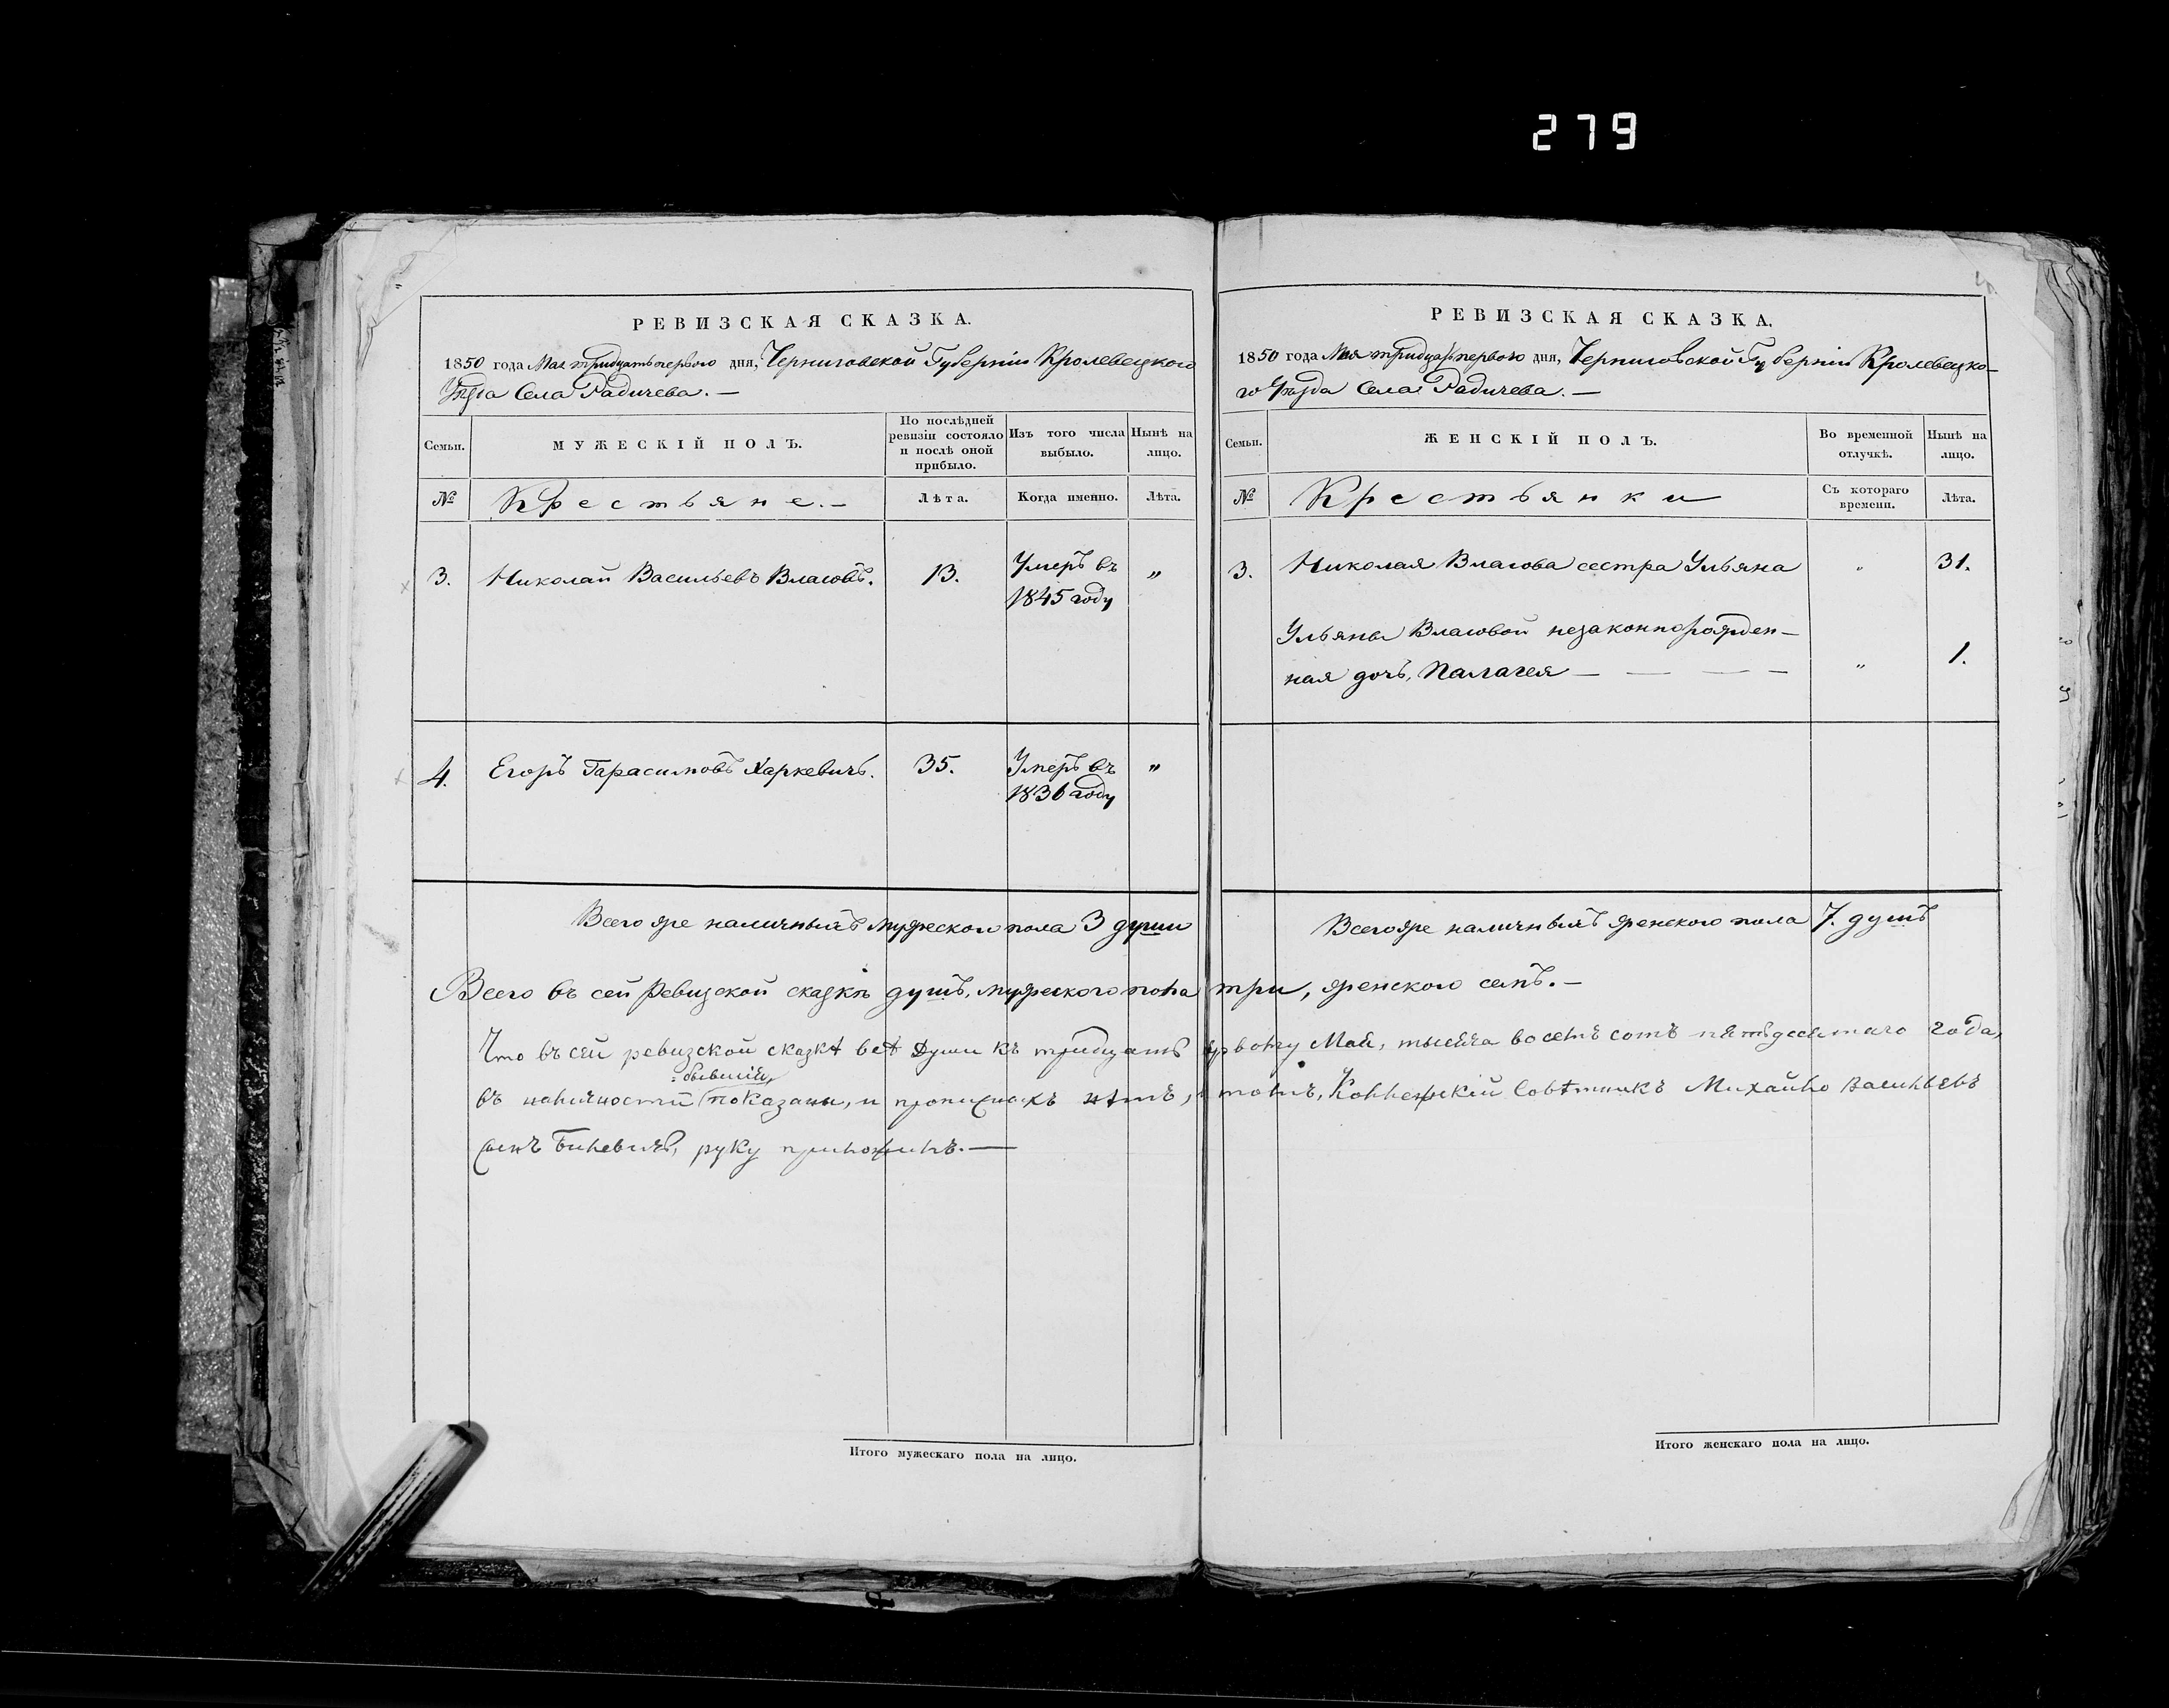 279
РЕВИЗСКАЯ СКАЗКА.
1850 года Мая тридцать первого дня, Черниговской Губерніи Кролевецкого
Уѣзда Села Радичева. —
Семьи.
МУЖЕСКІЙ ПОЛЪ.
По послѣдней ревизіи состояло и послѣ оной прибыло.
Изъ того числа выбыло.
Нынѣ на лицо.
№
Крестьяне. —
Лѣта.
Когда именно.
Лѣта.
3. Николай Васильевъ Власовъ. 13. Умеръ въ „
1845 году
4. Егоръ Гарасимовъ Харкевичъ. 35. Умеръ въ „
1836 году
Всего же наличныхъ мужеского пола 3 души
РЕВИЗСКАЯ СКАЗКА.
1850 года Мая тридцать первого дня, Черниговской Губерніи Кролевецко-
го Уѣзда Села Радичева. —
Семьи.
ЖЕНСКІЙ ПОЛЪ.
Во временной отлучкѣ.
Нынѣ на лицо.
№
Крестьянки
Съ котораго времени.
Лѣта.
3. Николая Власова сестра Ульяна „ 31.
Ульяны Власовой незаконнорожден-
ная дочь, Палагея — — — — „ 1.
Всего же наличныхъ женского пола 7. душъ
Всего въ сей Ревизской сказкѣ душъ, мужеского пола три, женского семь. —
Что въ сей ревизской сказкѣ всѣ души къ тридцать первому Мая, тысяча восемь сотъ пятьдесятаго года,
бывшія
въ наличности показаны, и прописныхъ нѣтъ, въ томъ, Коллежскій Совѣтникъ Михайло Васильевъ
сынъ Билевичъ, руку приложилъ. —
Итого мужескаго пола на лицо.
Итого женскаго пола на лицо.